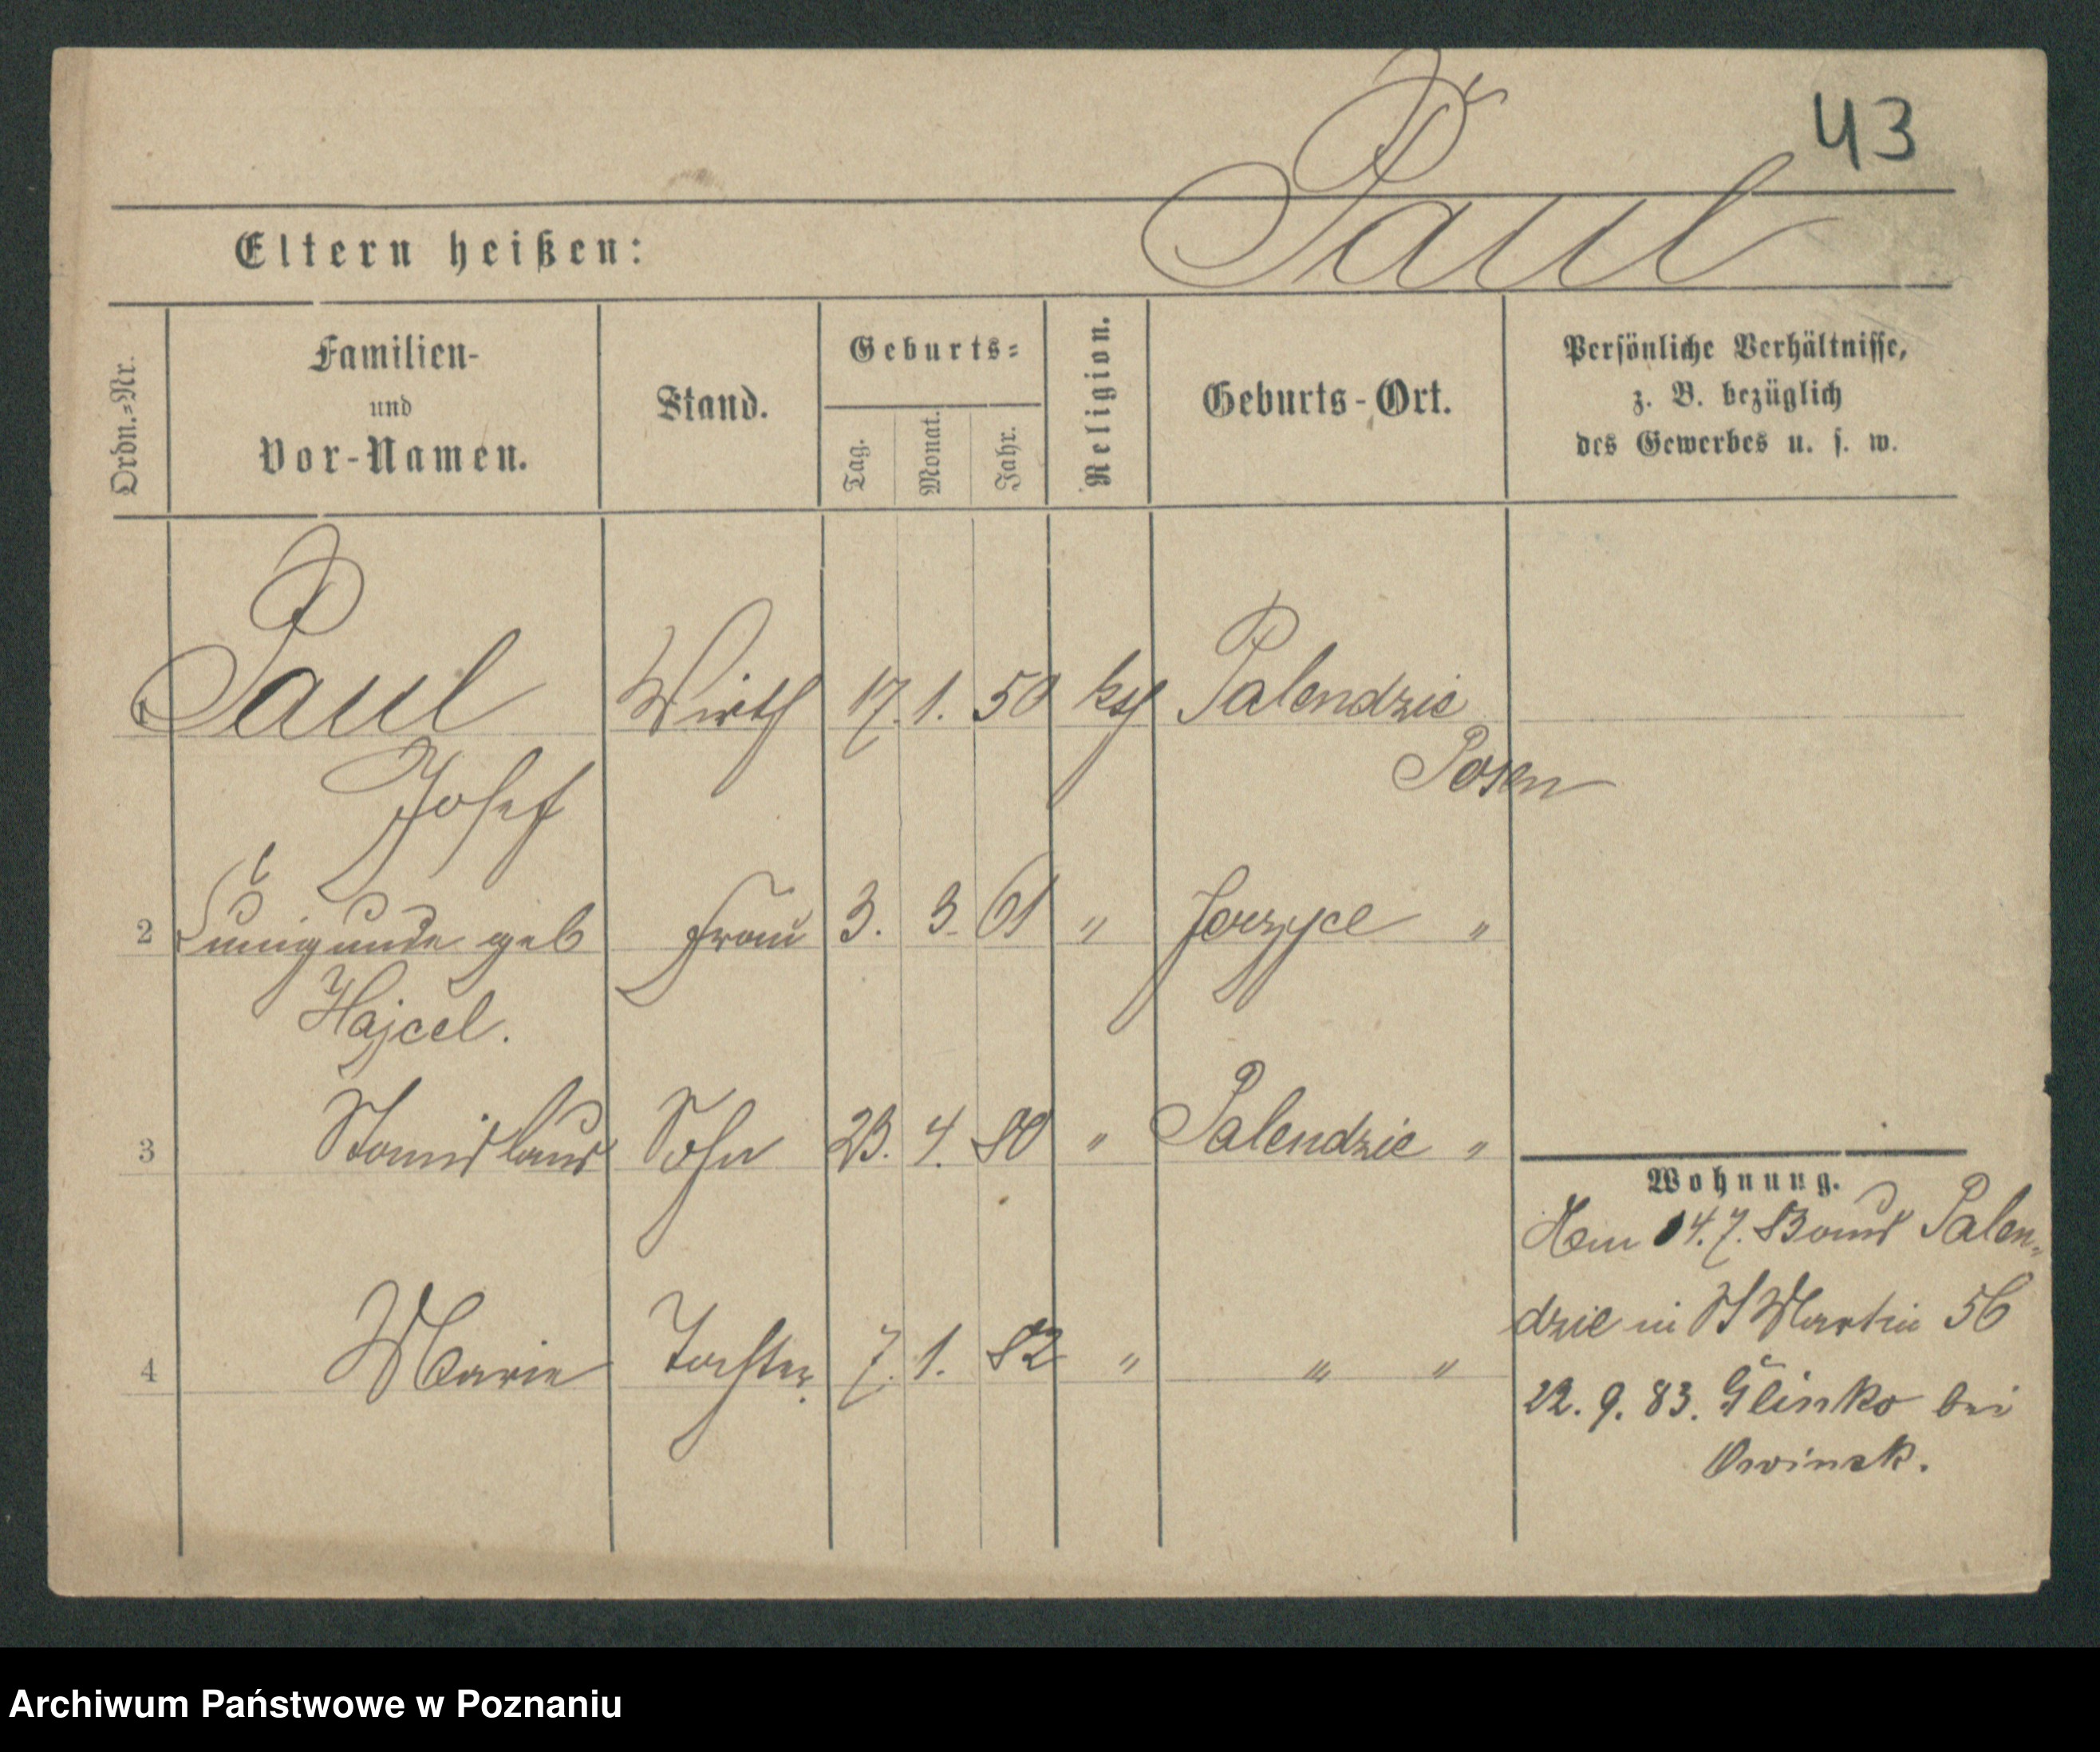 43
Eltern heißen: Paul
Ordn.=Nr.
Familien-
und
Vor-Namen.
Stand.
Geburts=
Tag.
Monat.
Jahr.
Religion.
Geburts-Ort.
Persönliche Verhältnisse,
z. B. bezüglich
des Gewerbes u. s. w.
1 Paul Wirth 17. 1. 50 kth Palendzie
Josef Posen
2 Cunigunde geb Frau 3. 3. 61 " "
Hajcel.
3 Stanislaus Sohn 23. 4. 80 " Palendzie "
4 Marie Tochter 7. 1. 82 " " "
Wohnung.
4. 7. 83 aus Palen-
dzie in St Martin 56
22. 9. 83. Glinko bei
Owinsk.
Archiwum Państwowe w Poznaniu